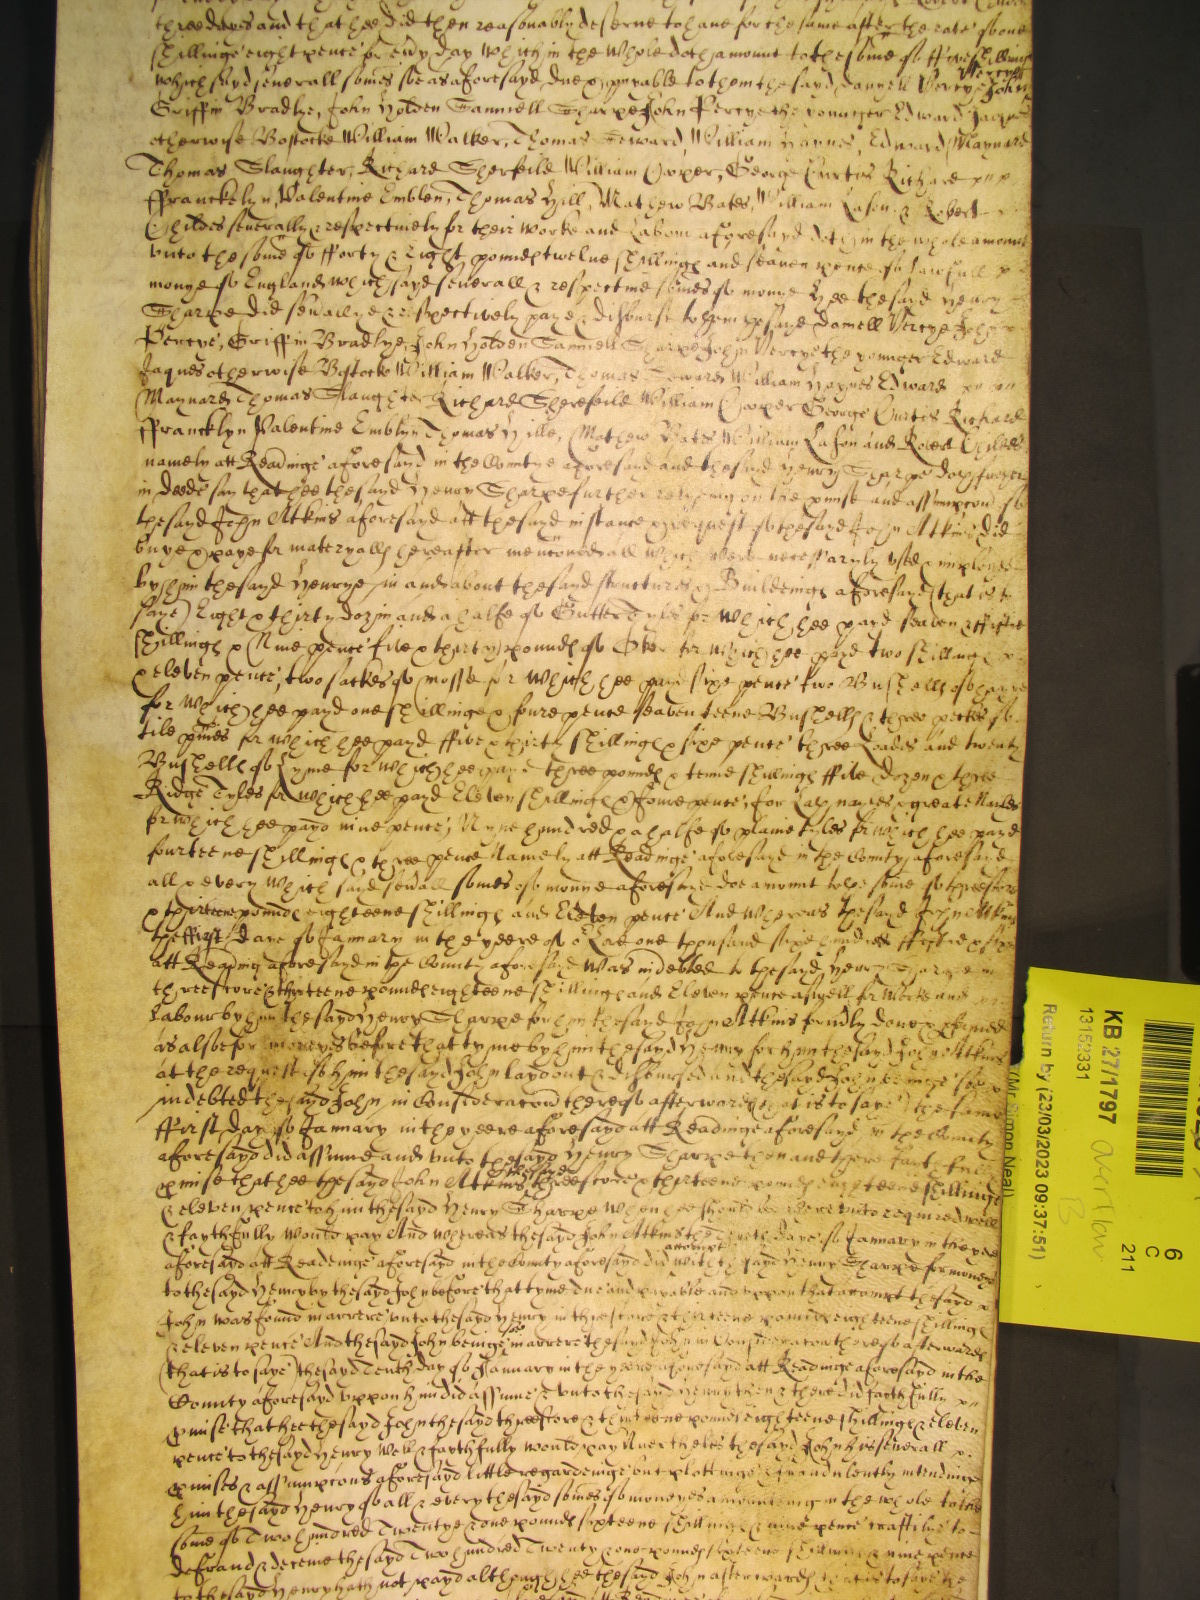 three dayes and that hee did then reasonably deserve to have for the same after the rate of one
shillinge eight pence for every day which in the whole doth amount to the some of ffive shillings
which sayd severall somes soe as aforesayd due & payable to them the sayd Daniell Percye John
Percye
Griffin Bradlye, John Holden Samuell Sharpe John Percye the younger Edward Jaques
otherwise Bostocke William Walker, Thomas Seward, William Haynes, Edward Maynard
Thomas Slaughter, Richard Sherfeild William Cooper, George Curtis Richard
ffranckelyn, Valentine Emblen, Thomas Hill, Mathew Bates, William Lason & Robert
Childes severally & respectively for their worke and labour aforesayd doth in the whole amount
unto the some of fforty & Eight pounds twelve shillings and seaven pence of lawfull
monye of England which sayd severall & respective somes of monye hee the sayd Henry
Sharpe did severallye & respectively paye & disburse to them the sayd Daniell Percye John
Percye, Griffin Bradlye, John Holden Samuell Sharpe John Percye the younger Edward
Jaques otherwise Bostocke William Walker, Thomas Seward William Haynes Edward
Maynard Thomas Slaughter Richard Sherefeild William Cooper George Curtis Richard
ffrancklyn Valentine Emblyn Thomas Hille, Mathew Bates William Lason and Robert Childes
namely att Readinge aforesayd in the Countye aforesayd and the sayd Henry Sharpe doth further
in deede say that hee the sayd Henry Sharpe further relying on the pmise and assumpcon of
the sayd John Atkins aforesayd att the sayd instance & request of the sayd John Atkins did
buye & paye for materyalls hereafter menconed all which were necessaryly used & imployed
by him the sayd Henrye in and about the sayd structures & Buildeings aforesayd (that is to
saye) Eight & thirty dozin and a halfe of Gutter Tyles for which hee payd seaven & fiftie
shillings & Nine pence five & thirty pounds of for which hee payd two shillings
& eleven pence, two sackes of mosse for which hee payd sixe pence two Bushells of hayre
for which hee payd one shillinge & foure pence seaventeene Bushells & three peckes of
tile pinnes for which hee payd ffive & thirty shillings & sixe pence three Loades and twenty
Bushells of Lyme for which hee payd three pounds & tenne shillings ffive dozen & three
Ridge Tyles for which hee payd Eleven shillings & foure pence, for Lath nayles & great Nailes
for which hee payd nine pence, Nyne hundred & a halfe of plaine tyles for which hee payd
fourteene shillings & three pence Namely att Readinge aforesayd in the County aforesayd
all & every which sayd severall somes of monye aforesayd doe amount to the some of threescore
& thirteene pounds eighteene shillings and Eleven pence And whereas the sayd John Atkins
the ffirst daye of January in the yeere of o Lord one thousand sixe hundred ffiftie &
att Reading aforesayd in the County aforesayd was indebted to the sayd Henry Sharpe in
threescore & thirteene pounds eighteene shillings and Eleven pence aswell for worke and
Labour by him the sayd Henry Sharpe for him the sayd John Atkins friendly done & pformed
as alsoe for moneyes before that tyme by him the sayd Henry for him the sayd John Atkins
at the request of him the sayd John layd out & disbursed and the sayd John beinge soe
indebted the sayd John in Consideracon thereof afterwards (that is to saye) the same
ffirst day of January in the yeere aforesayd att Readinge aforesayd in the County
aforesayd did assume and unto the sayd Henry Sharpe then and there faithfully
pmise that hee the sayd John Atkins the sayd threescore & thirteene pounds eighteene shillings
& eleven pence to him the sayd Henry Sharpe when hee should be thereunto required well
& faythfully would pay And whereas the sayd John Atkins the Tenth daye of January in the yere
aforesayd att Readinge aforesayd in the County aforesayd did accompt with the sayd Henry Sharpe for moneyes
to the sayd Henry by the sayd John before that tyme due and payable and uppon that accompt the sayd
John was found in arrere unto the sayd Henry in threescore & thirteene pounds eighteene shillings
& eleven pence And the sayd John beinge soe in arrere the sayd John in Consideracon thereof afterwards
(that is to saye) the sayd Tenth day of January in the yeere aforesayd att Readinge aforesayd in the
County aforesayd uppon him did assume & unto the sayd Henry then & there did faithfully
pmise that hee the sayd John the sayd threescore & thirteene pounds eighteene shillings & eleven
pence to the sayd Henry well & faythfully would pay Neverthelesse the sayd John his severall
pmises & assumpcons aforesayd little regardeinge but plottinge & fraudulently intendinge
him the sayd Henry of all & every the sayd somes of moneyes amounteing in the whole to the
some of Two hundred Twentye & one pounds sixteene shillings & nine pence craftily to
defraud & deceive the sayd Two hundred Twenty & one pounds sixteene shillings & nine pence
to the sayd Henry hath not payd although hee the sayd John afterwards that is to saye the
KB 27/1797
13152331
overflow
B
6
C
211
Return by (23/03/2023 09:37:51)
(Mr Simon Neal)